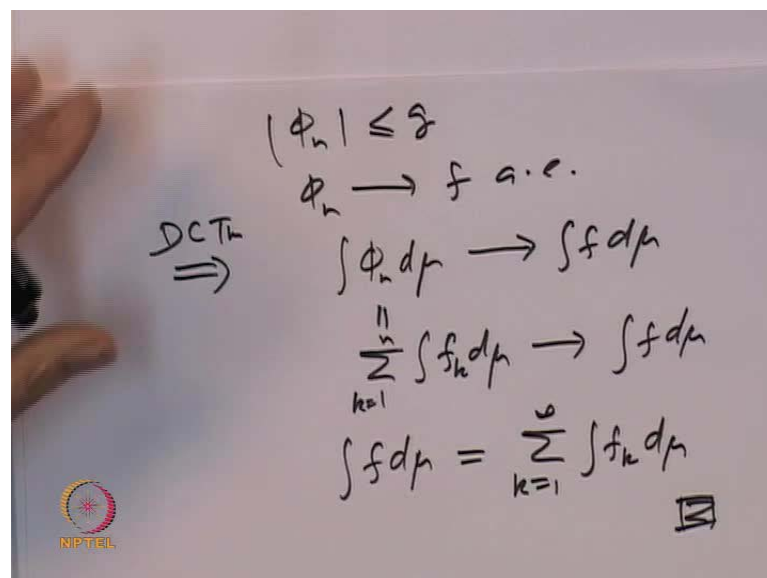 |Φₙ| ≤ g
Φₙ ⟶ f a.e.
DCThm ⟹ ∫Φₙ dμ ⟶ ∫f dμ
‖
n
∑ ∫fₖ dμ ⟶ ∫f dμ
k=1
∫f dμ = ∑_{k=1}^{∞} ∫fₖ dμ
NPTEL